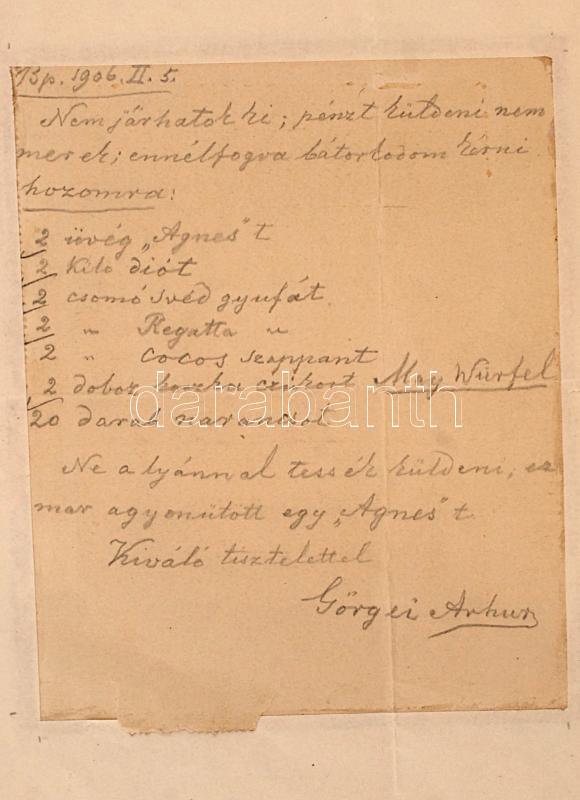 Bp. 1906. II. 5.
Nem járhatok ki; pénzt küldeni nem
merek; ennélfogva bátorkodom kérni
hozomra:
2 üvég „Agnes" t
2 kiló diót
2 csomó svéd gyufát
2 " Regatta "
2 " Cocos szappant
2 doboz kozka czukort Mey Würfel
20 darab narancsot
Ne a lyánnal tessék küldeni; ez
mar agyonütött egy „Agnes" t
Kiváló tisztelettel
Görgei Arhur
darabanth